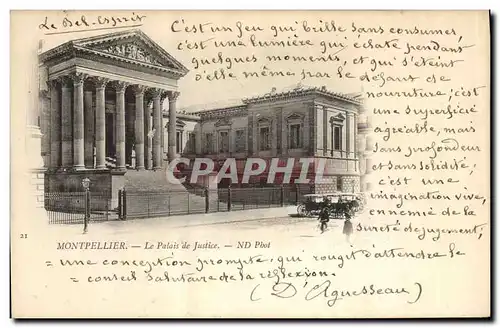 Le Bel-Esprit
C'est un feu qui brille sans consumer,
c'est une lumière qui éclate pendant
quelques moments, et qui s'éteint
d'elle même par le défaut de
nourriture; c'est
une superficie
agréable, mais
sans profondeur
et sans solidité;
c'est une
imagination vive,
ennemie de la
sûreté de jugement;
CPARAMA
21
MONTPELLIER. — Le Palais de Justice. — ND Phot
= une conception prompte, qui rougit d'attendre le
= conseil salutaire de la réflexion.
(D'Aguesseau)